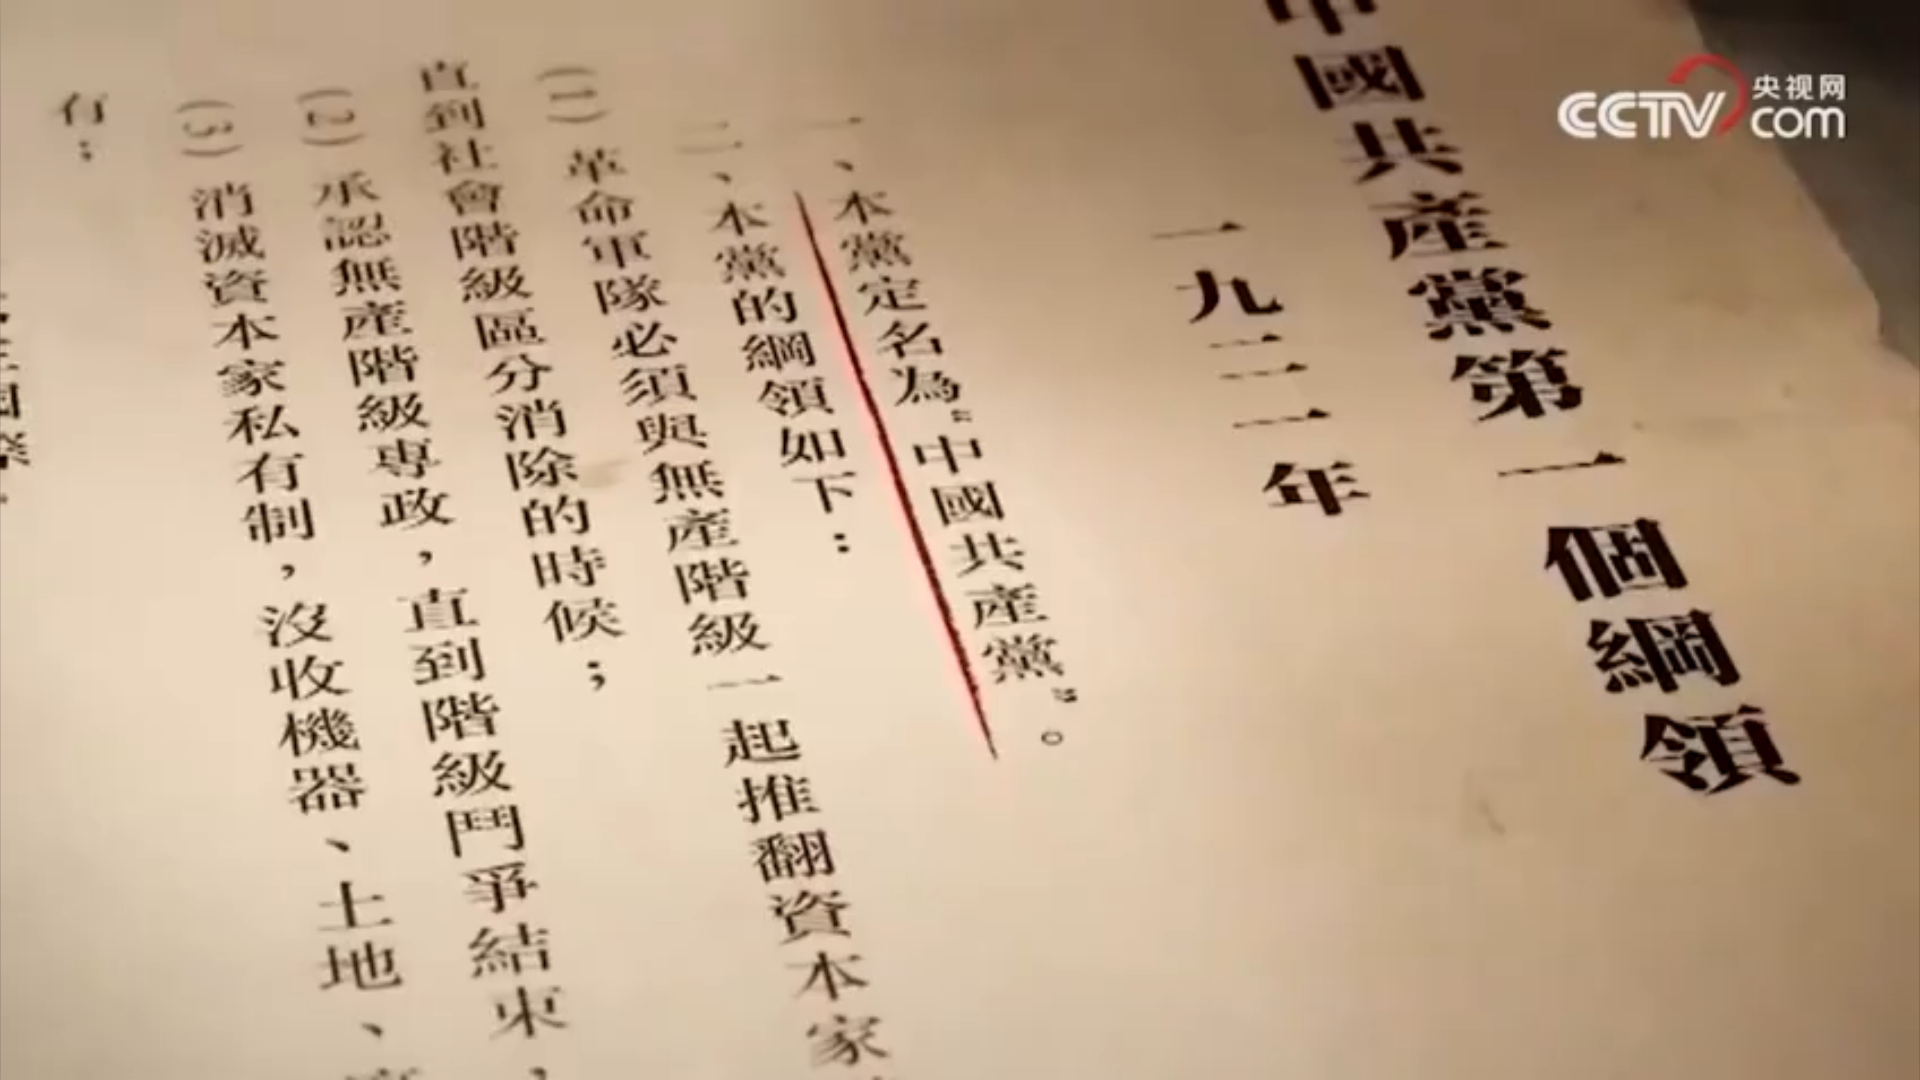 中國共產黨第一個綱領
一九二一年
一、本黨定名為“中國共產黨”。
二、本黨的綱領如下：
(1)革命軍隊必須與無產階級一起推翻資本家
直到社會階級區分消除的時候；
(2)承認無產階級專政，直到階級鬥爭結束，
(3)消滅資本家私有制，沒收機器、土地、
有：
CCTV 央视网
com